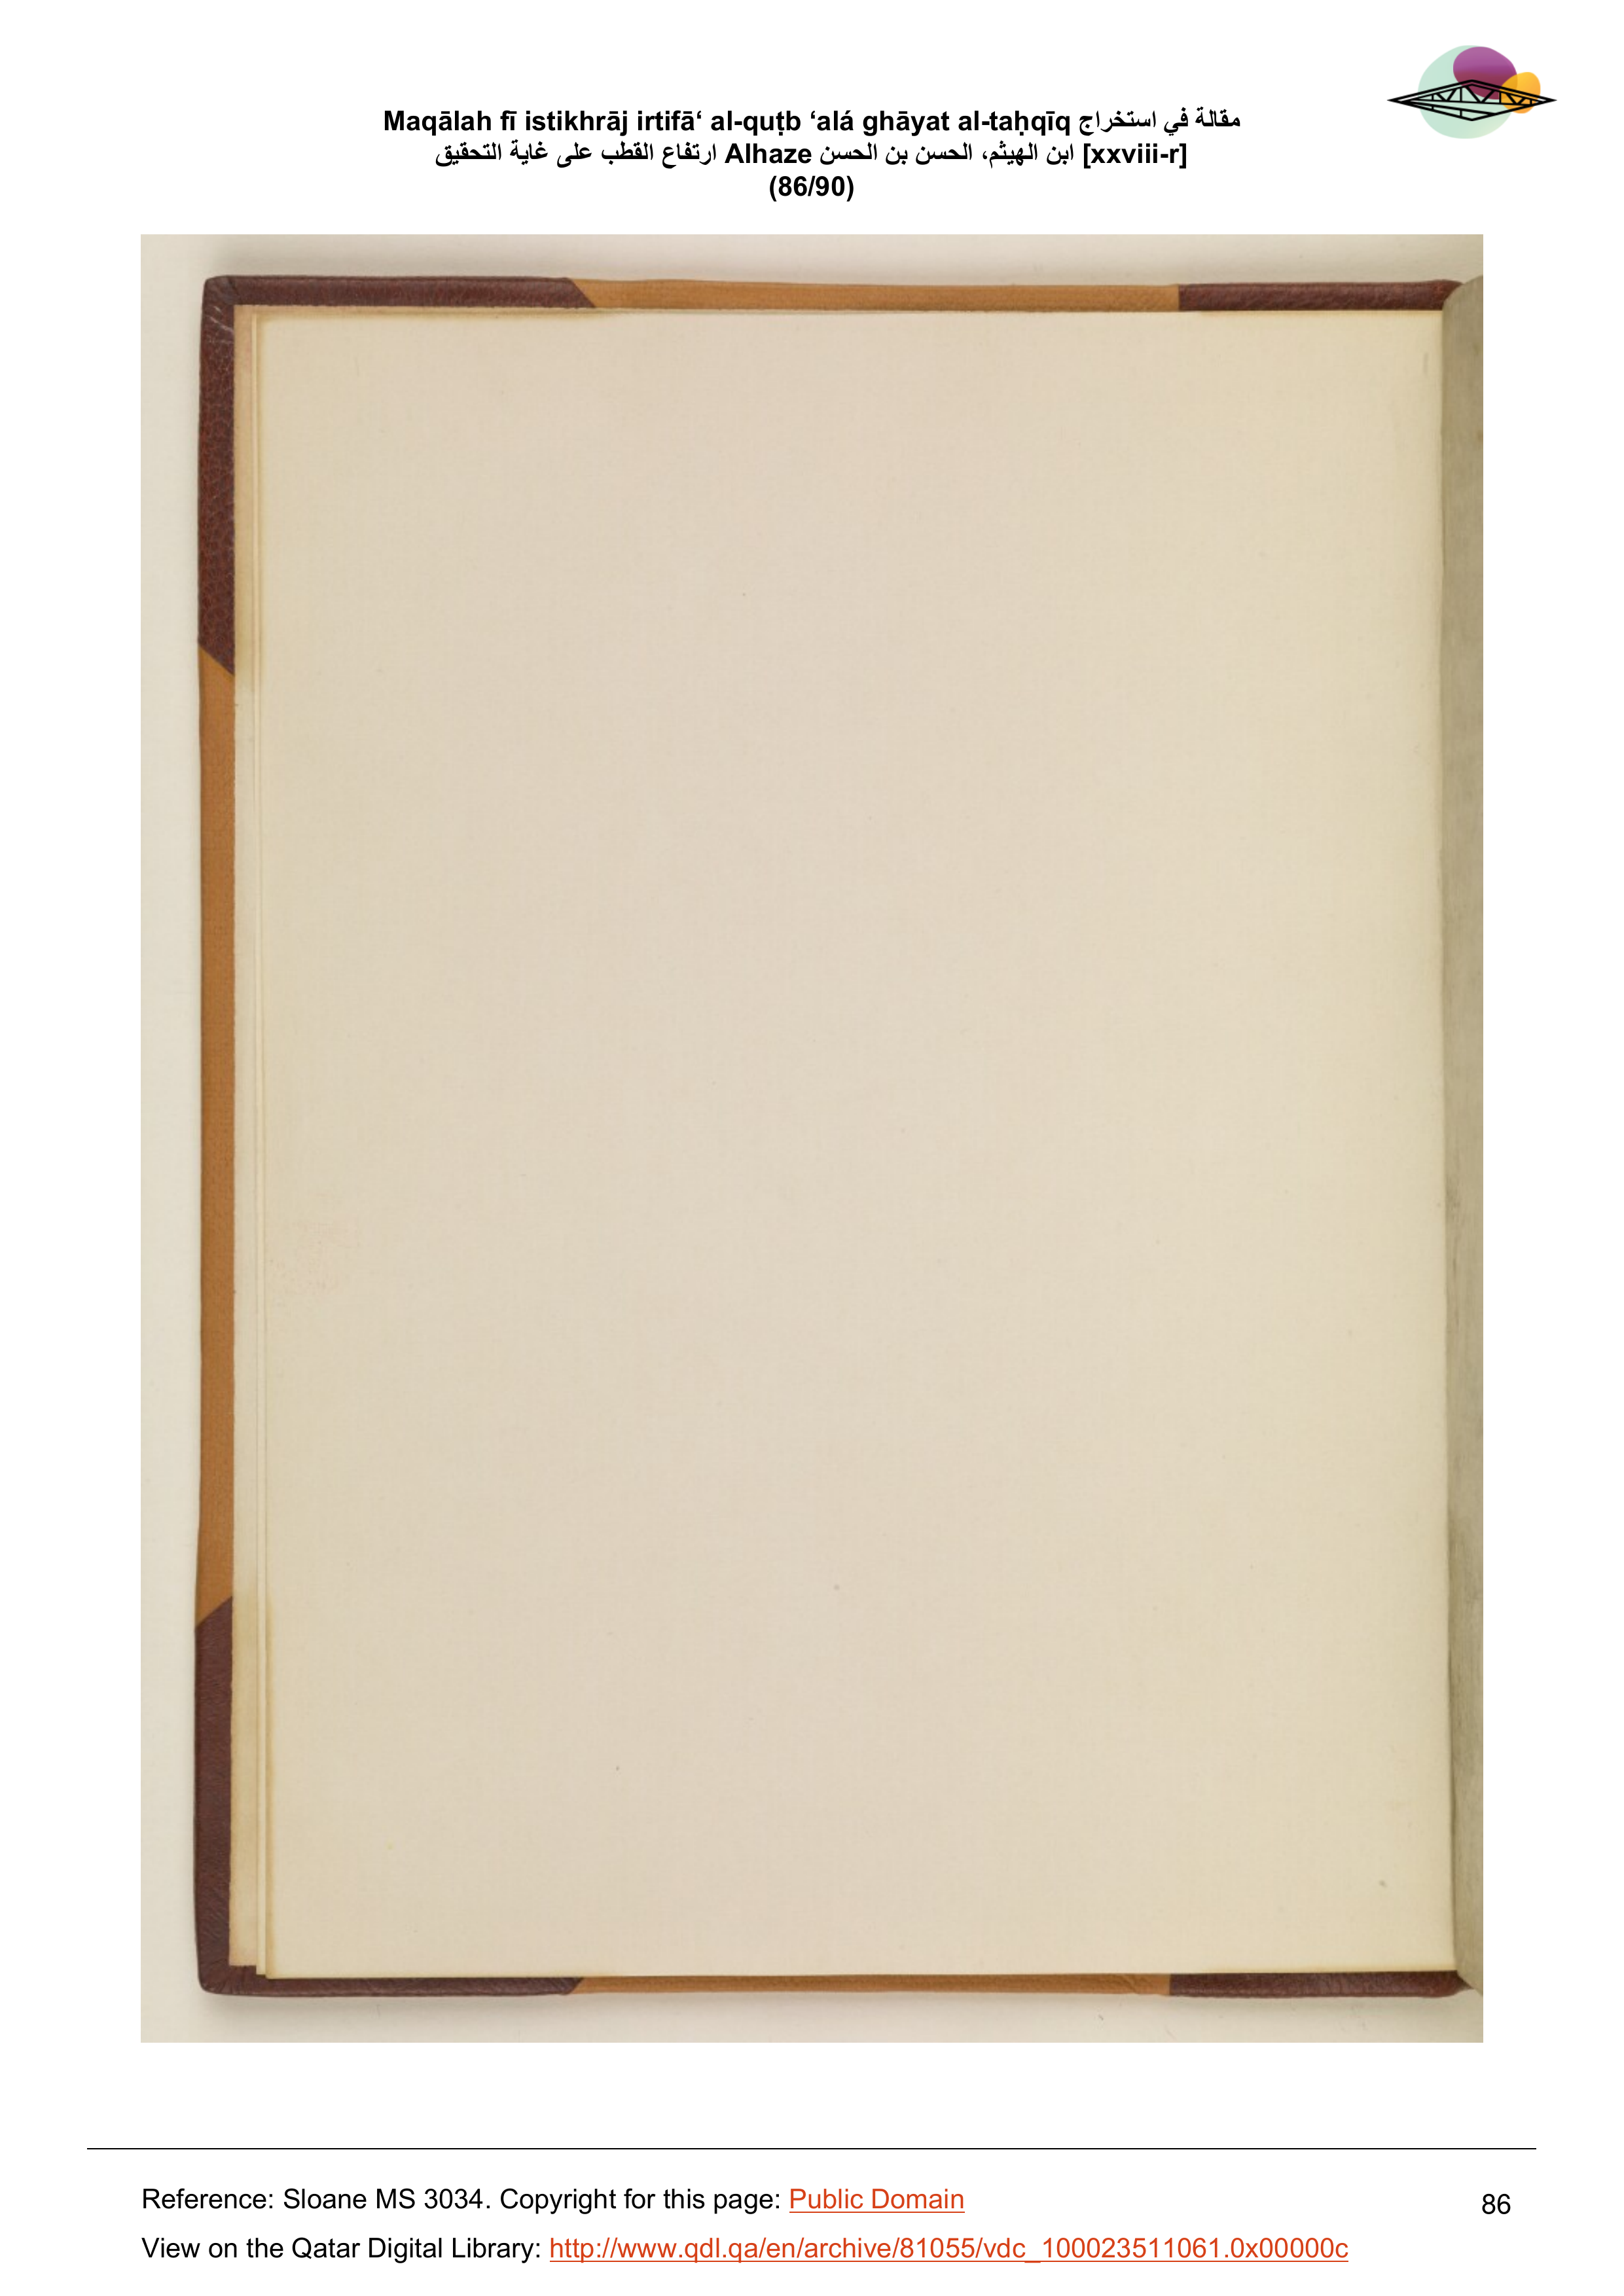 Maqālah fī istikhrāj irtifā‘ al-quṭb ‘alá ghāyat al-taḥqīq مقالة في استخراج
ارتفاع القطب على غاية التحقيق Alhaze ابن الهيثم، الحسن بن الحسن [xxviii-r]
(86/90)
Reference: Sloane MS 3034. Copyright for this page: Public Domain
86
View on the Qatar Digital Library: http://www.qdl.qa/en/archive/81055/vdc_100023511061.0x00000c